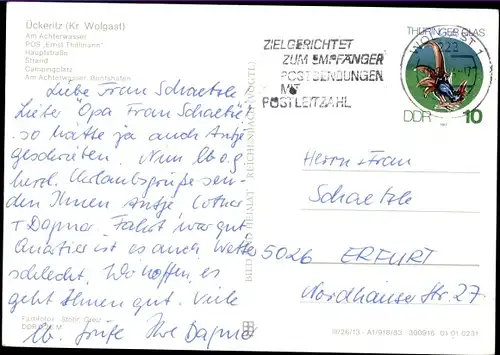 Ückeritz (Kr. Wolgast)
Am Achterwasser
POS „Ernst Thälmann"
Hauptstraße
Strand
Campingplatz
Am Achterwasser, Bootshafen
Liebe Frau Schaetzle
Lieber "Opa Franz
so hatte ja auch Antje
geschrieben. Nun
herzl. Urlaubsgrüße sen-
den Ihnen Antje Lothar
+ Dagmar. Fahrt war gut
Quartier ist es auch Wetter
schlecht. Wir hoffen, es
geht Ihnen gut. Viele
lb. Grüße Ihre Dagmar
DDR
BILD UND HEIMAT REICHENBACH (VOGTL)
ZIELGERICHTET
ZUM EMPFÄNGER
POSTSENDUNGEN
MIT
POSTLEITZAHL
WOLGAST 1
THÜRINGER GLAS
DDR 10
Herrn + Frau
Schaetzle
5026 ERFURT
Nordhäuser Str. 27
01 01 0231